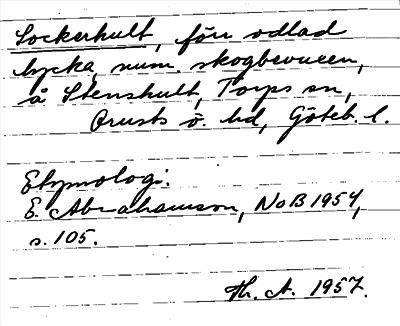 Sockerhult, förr odlad
lycka, num. skogbevuxen,
å Stenshult, Torps sn,
Orusts ö. hd, Göteb. l.
Etymologi:
E. Abrahamson, NoB 1954,
s. 105.
Th. A. 1957.